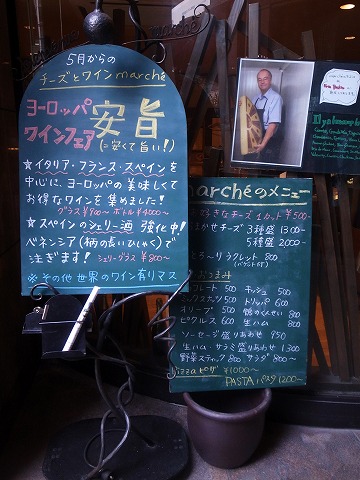 5月からの
チーズとワイン marché
ヨーロッパ
ワインフェア
安旨
(=安くて旨い!)
☆イタリア・フランス・スペインを
中心に、ヨーロッパの美味しくて
お得なワインを集めました!
グラス¥700〜 ボトル¥4000〜
☆スペインのシェリー酒 強化中!
ベネンシア(柄の長いひしゃく)で
注ぎます! シェリーグラス ¥800〜
※その他 世界のワイン有りマス
marchéのメニュー
お好きなチーズ 1カット ¥500〜
おまかせチーズ 3種盛 1300〜
5種盛 2000〜
とろ〜りラクレット 800
(バゲット付)
おつまみ
チョコレート 500 キッシュ 500
ミックスナッツ 500 トリッパ 600
オリーブ 500 鴨くんせい 800
ピクルス 600 生ハム 800
ソーセージ盛りあわせ 950
生ハム・サラミ盛りあわせ 1300
野菜スティック 800 サラダ 800〜
Pizza ピザ ¥1000〜
PASTA パスタ 1200〜